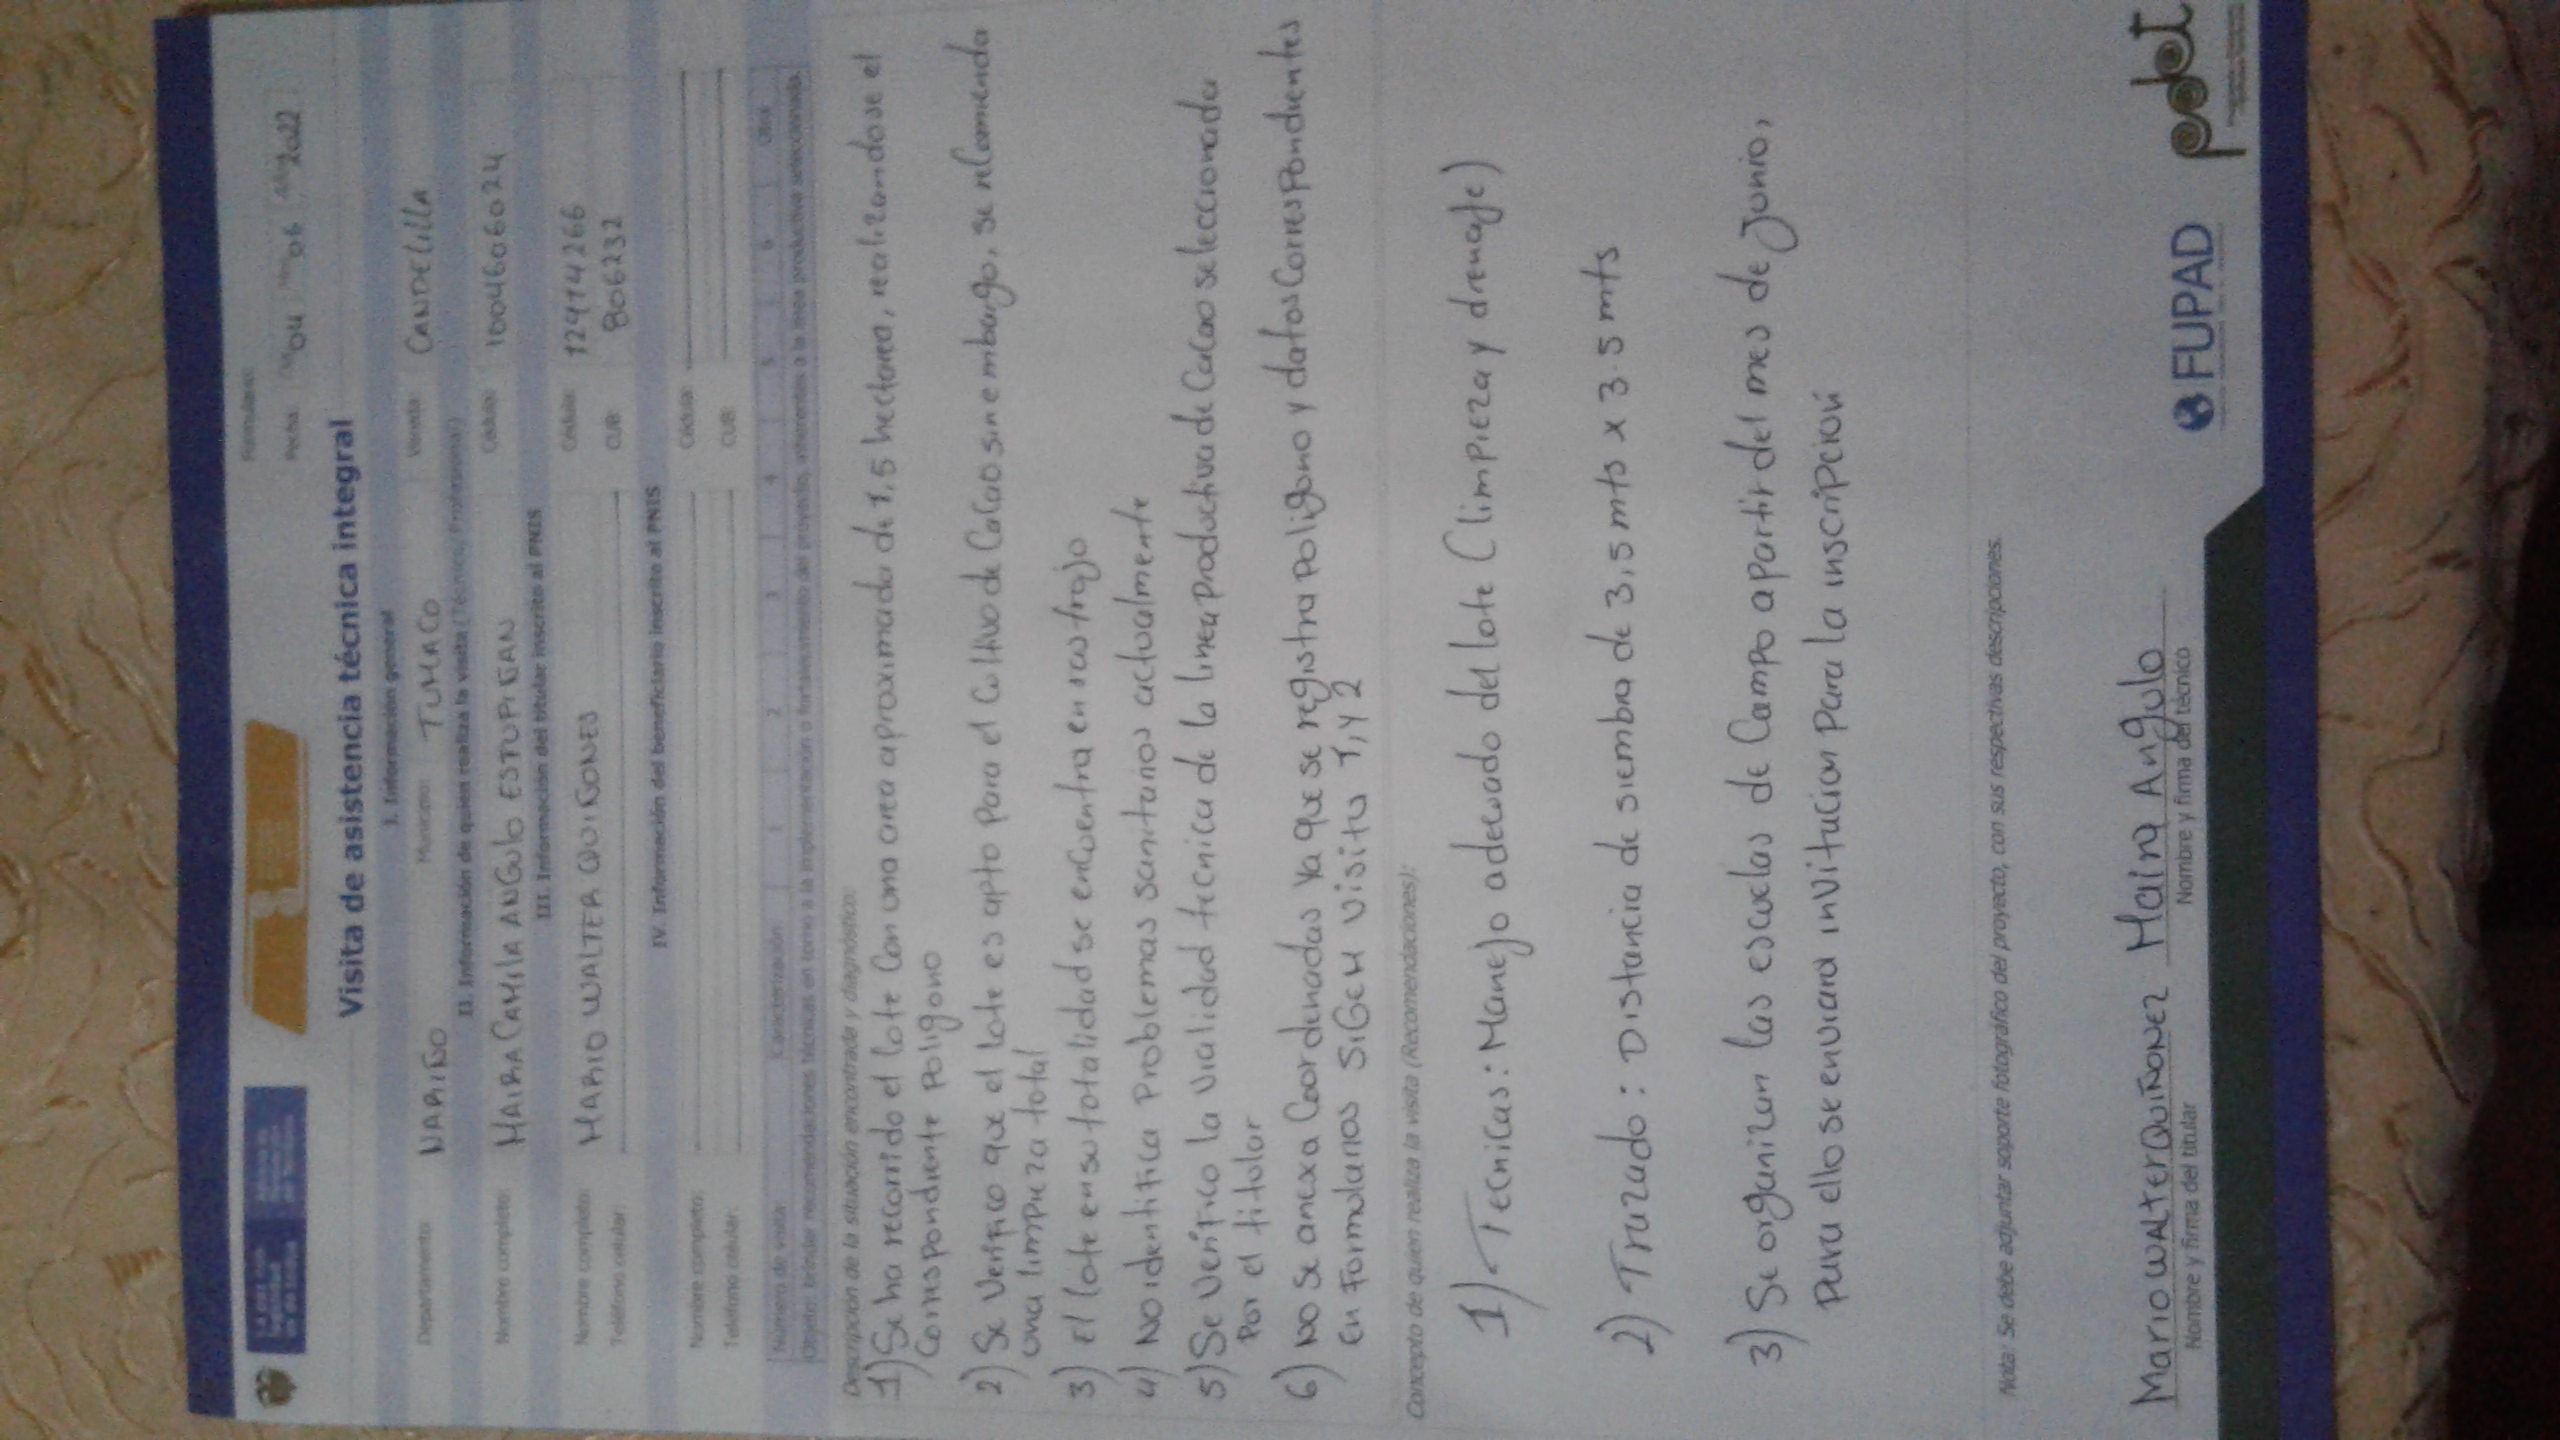 Formulario:
Fecha: Día 04 Mes 06 Año 2022
Visita de asistencia técnica integral
I. Información general
Departamento: NARIÑO Municipio: TUMACO Vereda: CANDELILLA
II. Información de quien realiza la visita (Técnico, Profesional)
Nombre completo: MAIRA CAMILA ANGULO ESTUPIÑAN Cédula: 1004606024
III. Información del titular inscrito al PNIS
Nombre completo: MARIO WALTER QUIÑONES Cédula: 12914266
Teléfono celular: CUB: 806232
IV. Información del beneficiario inscrito al PNIS
Nombre completo: Cédula:
Teléfono celular: CUB:
Número de visita: Caracterización 1 2 3 4 5 6 Otra
Objeto: brindar recomendaciones técnicas en torno a la implementación o fortalecimiento del proyecto, inherentes a la línea productiva seleccionada.
Descripción de la situación encontrada y diagnóstico:
1) Se ha recorrido el lote Con una area aproximada de 1,5 hectarea, realizandose el
Correspondiente Poligono
2) Se Verifico que el lote es apto para el Cultivo de Cacao sin embargo, se recomienda
una limpieza total
3) El lote en su totalidad se encuentra en rastrojo
4) No identifica Problemas sanitarios actualmente
5) Se Verifico la Vialidad tecnica de la linea Productiva de Cacao seleccionada
Por el titular
6) No Se anexa Coordenadas Ya que se registra Poligono y datos Correspondientes
en Formularios SIGEM Visita 1, y 2
Concepto de quien realiza la visita (Recomendaciones):
1) Tecnicas: Manejo adecuado del lote (limpieza y drenaje)
2) Trazado: Distancia de siembra de 3,5 mts x 3.5 mts
3) Se organizan las escuelas de Campo a partir del mes de Junio,
Para ello se enviara invitacion Para la inscripción
Nota: Se debe adjuntar soporte fotográfico del proyecto, con sus respectivas descripciones.
Mario WALTER QUIÑONEZ Maira Angulo
Nombre y firma del titular Nombre y firma del técnico
FUPAD
pdet